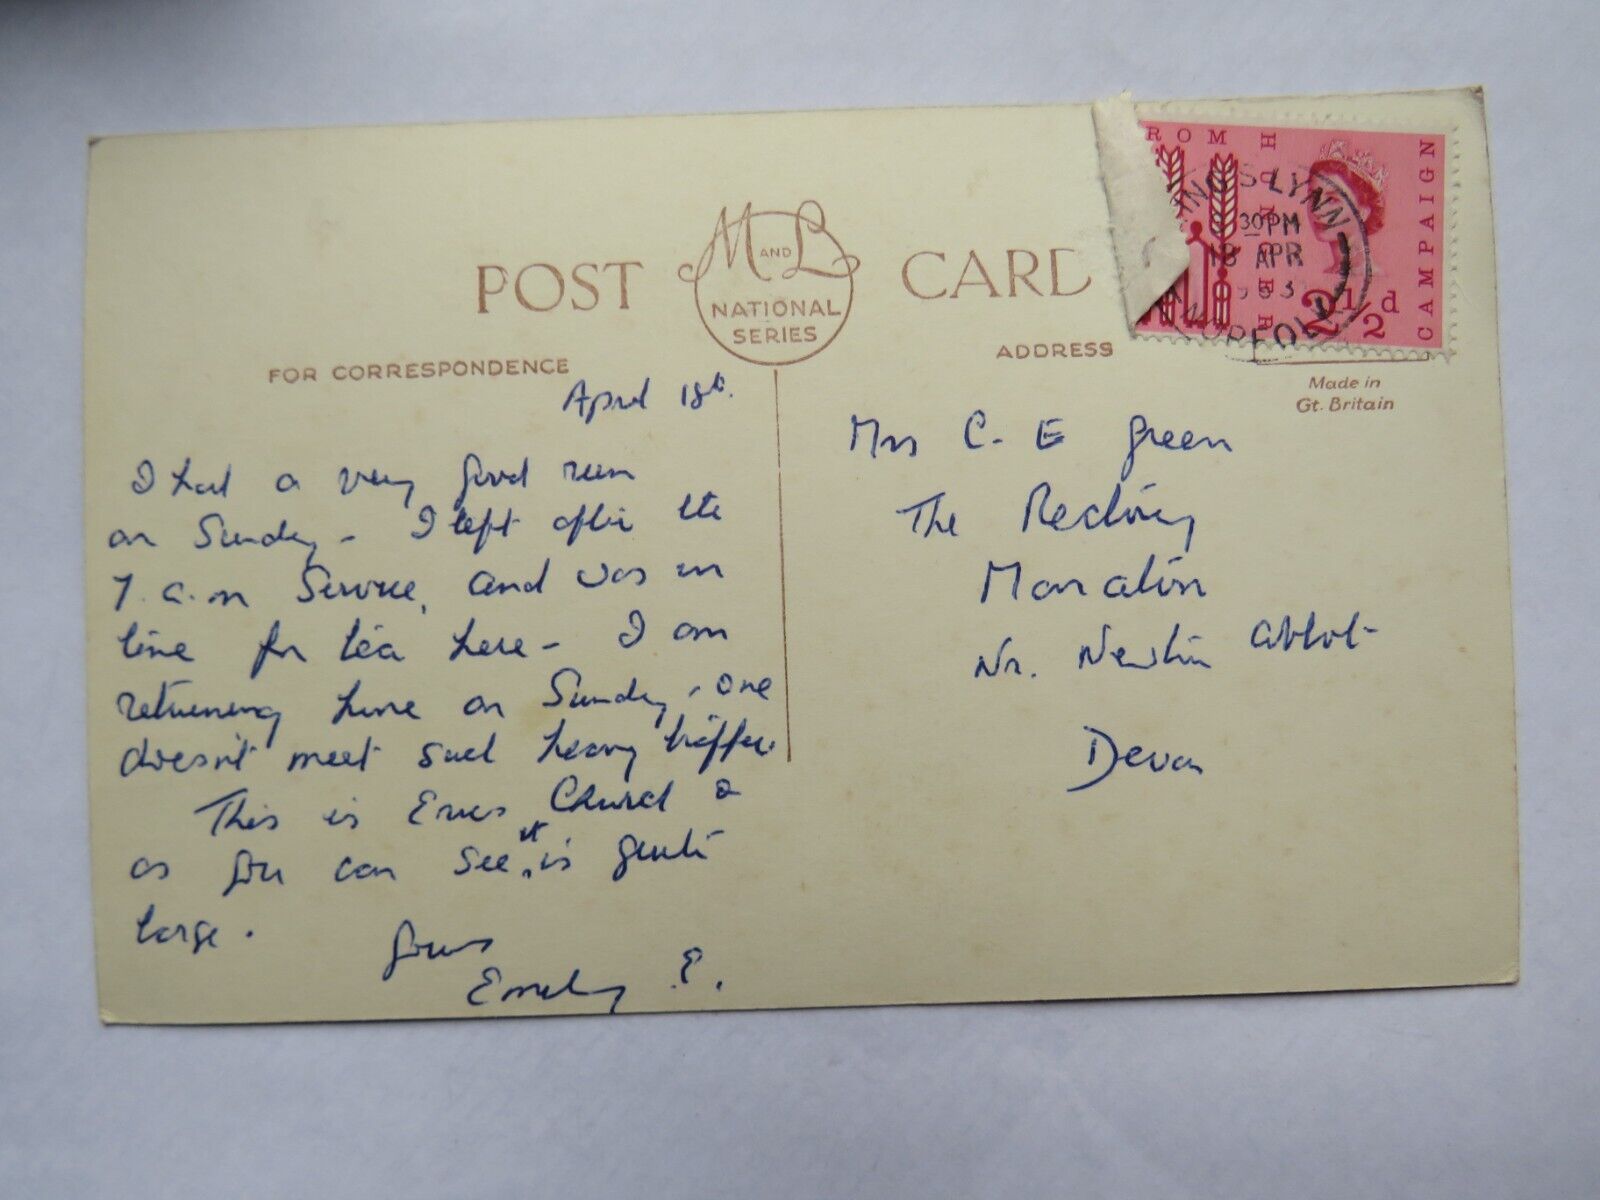 POST CARD
M AND L
NATIONAL
SERIES
FOR CORRESPONDENCE
ADDRESS
Made in
Gt. Britain
ROM HUNGER
CAMPAIGN
2½d
LYNN
30PM
18 APR
NORFOLK
April 18th.
I had a very good run
on Sunday - I left after the
7 a.m Service, and was in
time for tea here - I am
returning home on Sunday - one
doesn't meet such heavy traffic.
This is Erics Church &
as you can see it is quite
large.
Yours
E.
Mrs C. E Green
The Rectory
Manaton
Nr. Newton Abbot
Devon